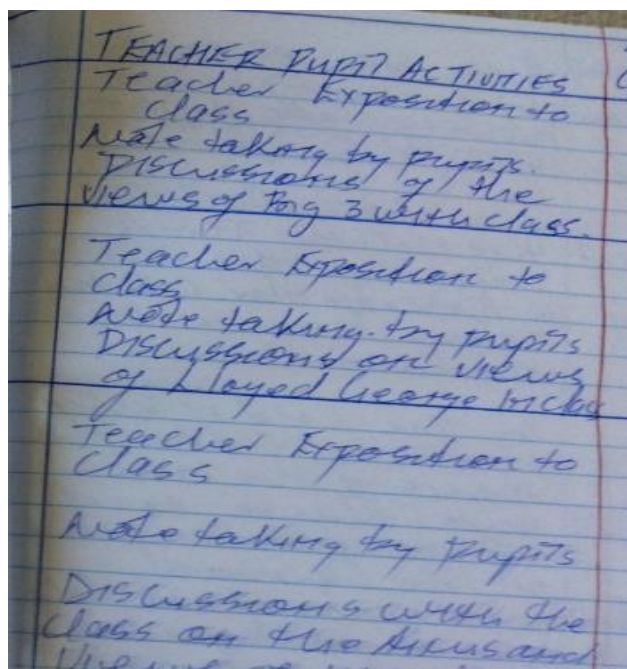 TEACHER PUPIL ACTIVITIES
Teacher Exposition to
class
Note taking by pupils.
Discussions of the
views of Big 3 with class.
Teacher Exposition to
class
Note taking by pupils
Discussions on views
of Lloyed George in class
Teacher Exposition to
class
Note taking by pupils
Discussions with the
class on the Aims and